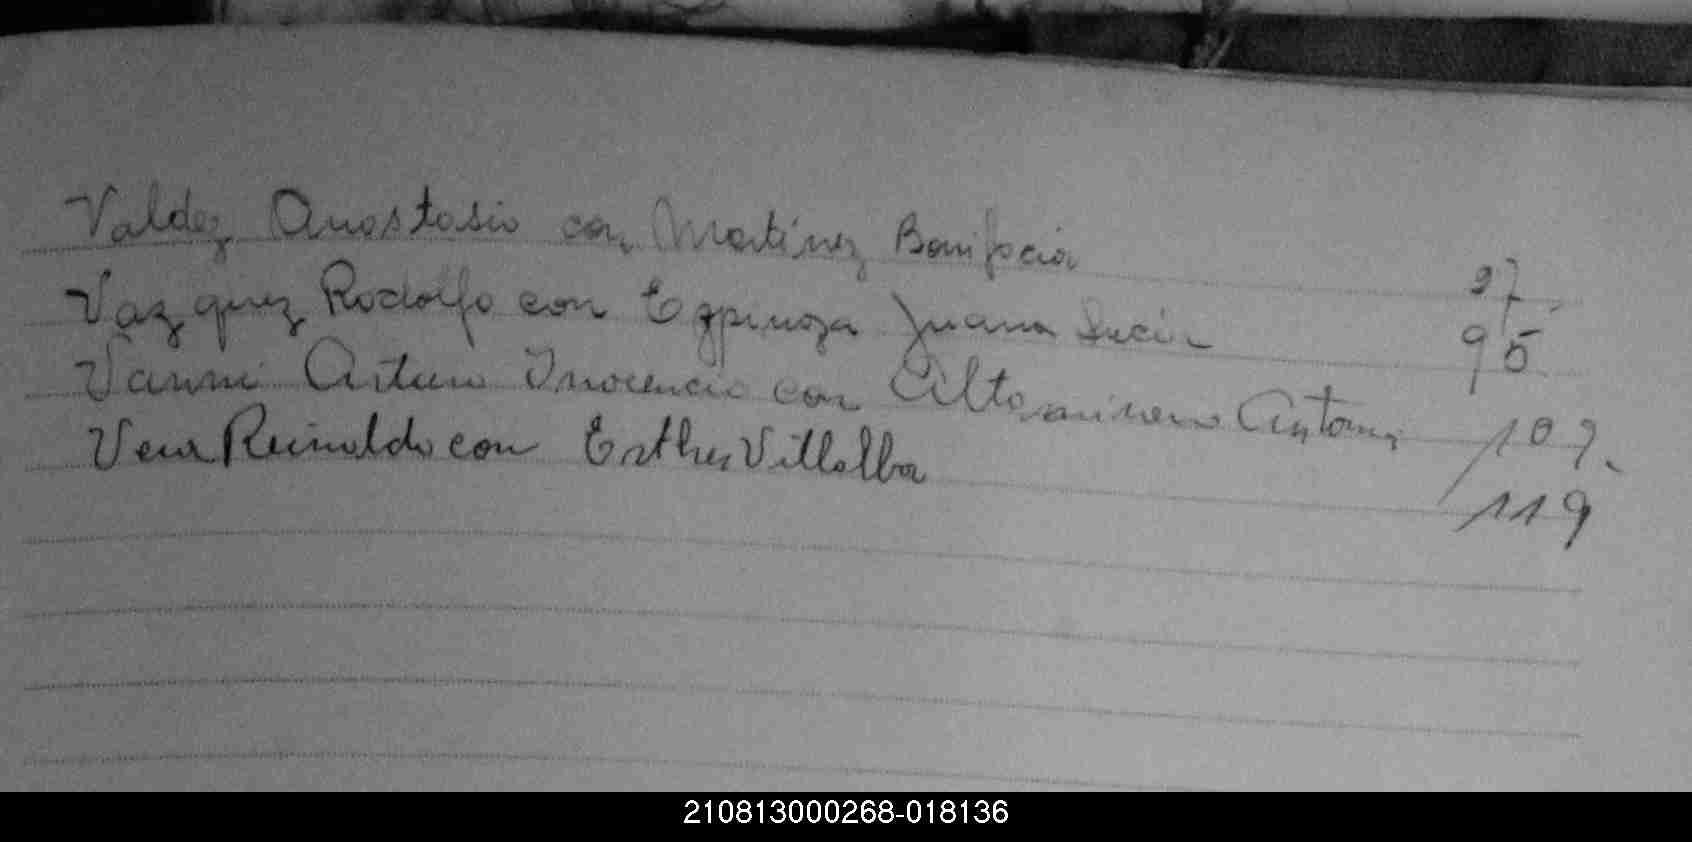 Valdez Anastasio con Martinez Bonifacia 97
Vazquez Rodolfo con Espinoza Juana Lucia 95
Vanni Arturo Inocencio con Altamirano Antonia 107.
Vera Reinaldo con Esther Villalba 119
210813000268-018136